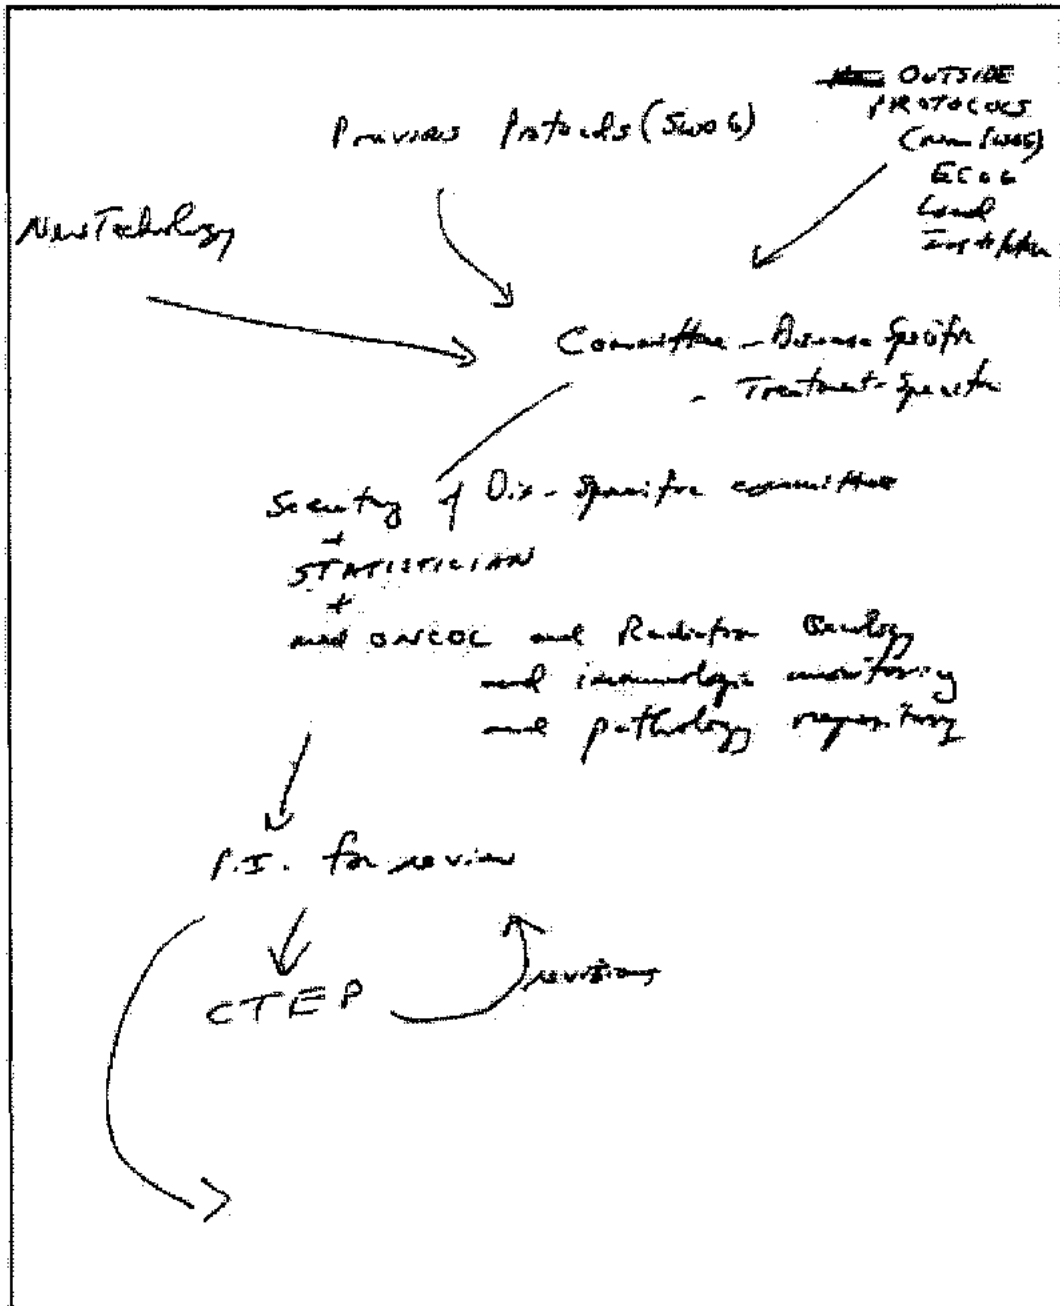 Previous Protocols (SWOG)
OUTSIDE
PROTOCOLS
(non SWOG)
ECOG
Local
Institution
New Technology
Committee - Disease Specific
- Treatment-Specific
Secretary of Dis-Specific committee
+
STATISTICIAN
+
med ONCOL and Radiation Oncology
and immunologic monitoring
and pathology repository
P.I. for review
CTEP
revisions